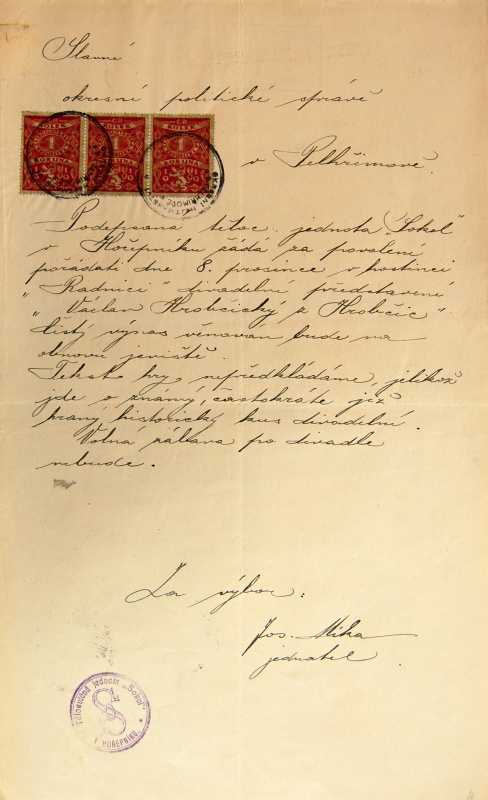 Slavné
okresní politické správě
v Pelhřimově.
ČS
KOLEK
1
KORUNA
ČS
KOLEK
1
KORUNA
ČS
KOLEK
1
KORUNA
Podepsaná tělocv. jednota „Sokol"
v Hořepníku žádá za povolení
pořádati dne 8. prosince v hostinci
„Radnici" divadelní představení
„Václav Hrobčický z Hrobčic"
Čistý výnos věnován bude na
obnovu jeviště.
Tekst hry nepředkládáme, jelikož
jde o známý, častokráte již
hraný, historický kus divadelní.
Volná zábava po divadle
nebude.
Za výbor:
Jos. Mika
jednatel.
Tělocvičná jednota „Sokol"
v HOŘEPNÍKU.